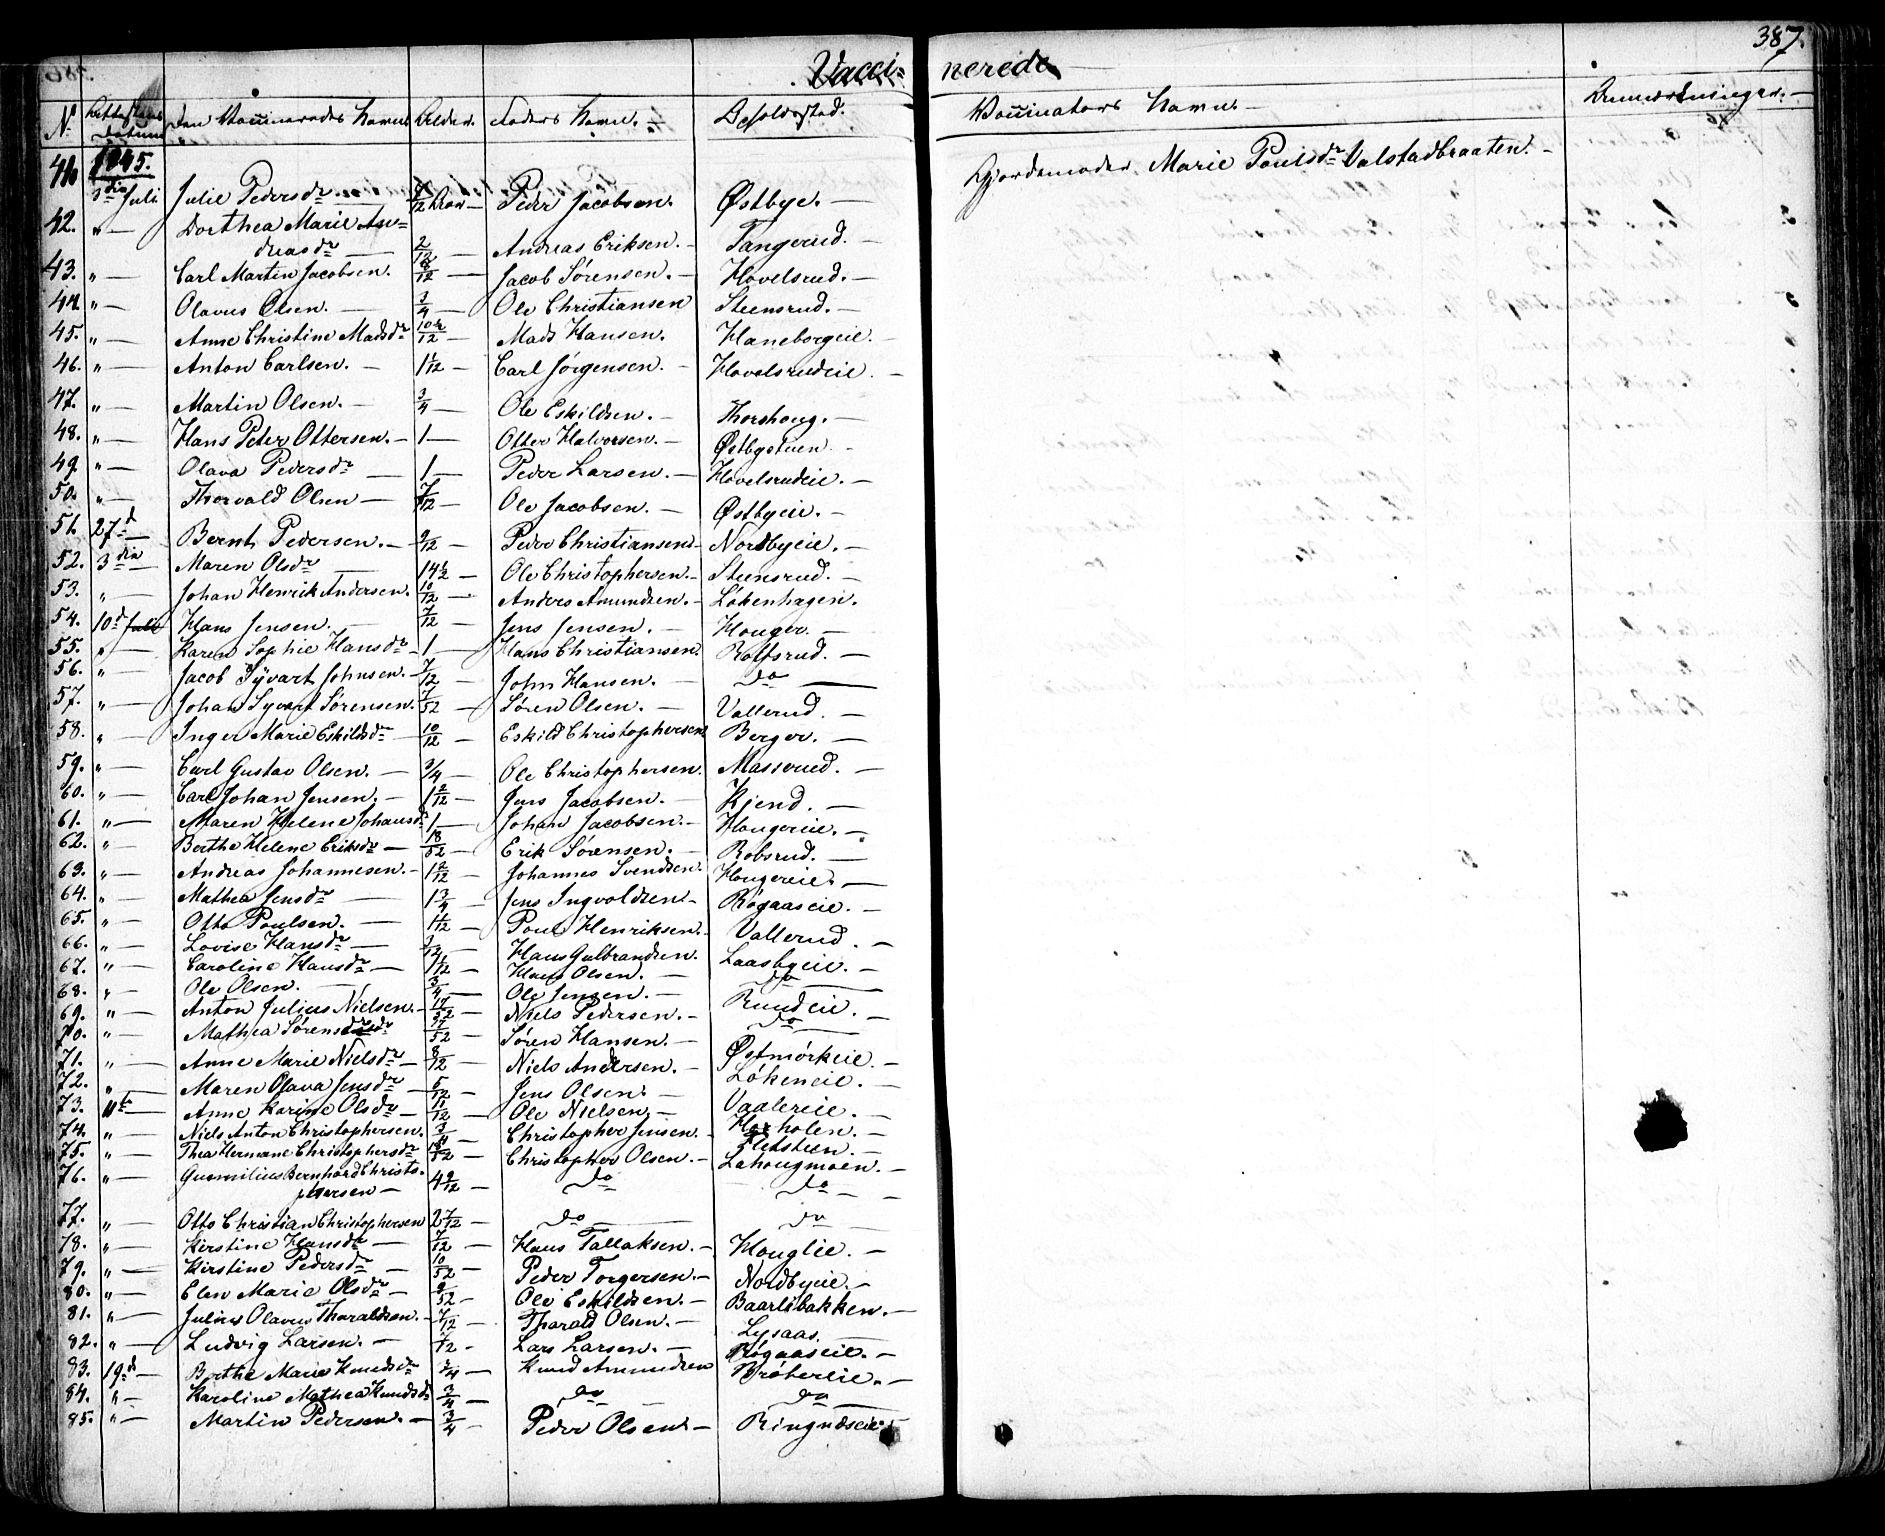 387.
Vacci= nerede
No Attestens datum Den Vaccineredes Navn Alder. Faders Navn. Opholdsstad. Vaccinators Navn. Anmærkninger.
1845.
41. 3die Juli Julie Pedersdr /12 Aar Peder Jacobsen. Østbye. Gjordemoder Marie Poulsdr Valstadbraaten.
42. " Dorthea Marie An=
dreasdr 2/12 Andreas Eriksen. Tangerud.
43. " Carl Martin Jacobsen. 8/12 Jacob Sørensen. Hovelsrud.
44. " Olavus Olsen. 3/4 Ole Christiansen Steensrud.
45. " Anne Christine Madsdr 10½/12 Mads Hansen. Haneborgeie.
46. " Anton Carlsen. 1 1/12 Carl Jørgensen. Hovelsrudeie.
47. " Martin Olsen. 3/4 Ole Eskildsen. Thorshoug.
48. " Hans Peter Ottersen. 1 Otter Halvorsen. Østbystuen
49. " Olava Pedersdr 1 Peder Larsen. Hovelsrudeie.
50. " Thorvald Olsen 7/12 Ole Jacobsen. Østbyeie.
51. 27d Bernt Pedersen. 9/12 Peder Christiansen Nordbyeie.
52. 3die Maren Olsdr 14½ Ole Christophersen. Steensrud.
53. " Johan Henrik Andersen. 10/12 Anders Amundsen. Løkenhagen.
54. 10d Juli Hans Jensen. 7/12 Jens Jensen. Houger.
55. " Karen Sophie Hansdr 1 Hans Christiansen. Rolfsrud.
56. " Jacob Syvart Johnsen. 7/12 John Hansen. do
57. " Johan Syvert Sørensen. 7/52 Søren Olsen. Vallerud.
58. " Inger Marie Eskildsdr 10/12 Eskild Christophersen Berger.
59. " Carl Gustav Olsen. 3/4 Ole Christophersen. Masserud.
60. " Carl Johan Jensen. 1 2/12 Jens Jacobsen. Kjend.
61. " Maren Helene Johansdr 1 Johan Jacobsen. Hougereie.
62. " Berthe Helene Eriksdr 18/52 Erik Sørensen. Robsrud.
63. " Andreas Johannesen. 1 2/12 Johannes Svendsen. Hougereie.
64. " Mathea Jensdr 1 3/4 Jens Ingvoldsen Røgaaseie.
65. " Otto Poulsen. 1 1/12 Poul Henriksen. Vallerud.
66. " Lovise Hansdr 3/12 Hans Gulbrandsen. Laasbyeie.
67. " Caroline Hansdr 1 1/12 Hans Olsen. do
68. " Ole Olsen. 3/4 Ole Jensen. Ruudeie.
69. " Anton Julius Nielsen. 17/52 Niels Pedersen. do
70. " Mathea Sørensdr 37/52 Søren Hansen. Østmørkeie.
71. " Anne Marie Nielsdr 8/12 Niels Andersen. Løkeneie.
72. " Maren Olava Jensdr 5/12 Jens Olsen. Vaalereie.
73. 11te Anne Karine Olsdr 11/12 Ole Nielsen. Horholen.
74. " Niels Anton Christophersen. 3/4 Christopher Jensen.
75. " Thea Hermane Christophersdr /52 Christopher Olsen. Lahougmoen.
76. " Bernhard Christo=
phersen 4 /12 do do
77. " Otto Christian Christophersen 2 7/12 do do
78. " Kirstine Hansdr 7/12 Hans Tallaksen. Houglie.
79. " Kirstine Pedersdr 10/52 Peder Torgersen. Nordbyeie.
80. " Elen Marie Olsdr 9/52 Ole Eskildsen. Baarlibakken.
81. " Julius Olavus Tharaldsen. 7/12 Tharald Olsen. Lysaas.
82. " Ludvig Larsen. 7/12 Lars Larsen. Røgaaseie.
83. 19d Berthe Marie Knudsdr /4 Knud Amundsen Brøtereie.
84. " Karoline Mathea Knudsdr 3/4 do do
85. " Martin Pedersen. 3/4 Peder Olsen Ringnæseie.